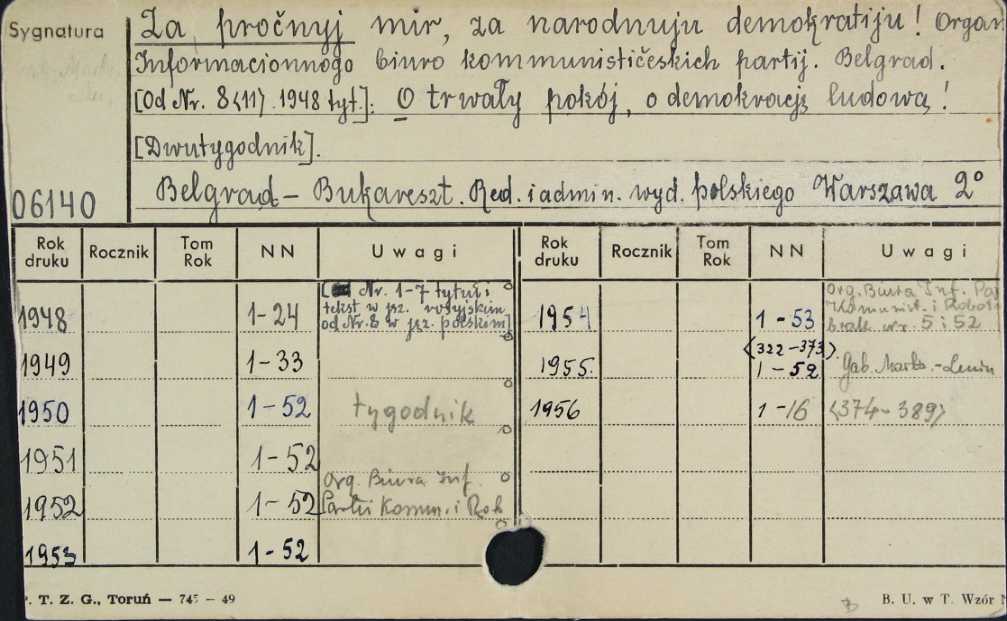 Sygnatura
Za pročnyj mir, za narodnuju demokratiju! Organ
Informacionnogo biuro kommunističeskich partij. Belgrad.
[Od Nr. 8<11>.1948 tyt.]: O trwały pokój, o demokrację ludową!
[Dwutygodnik].
06140
Belgrad – Bukareszt. Red. i admin. wyd. polskiego Warszawa 2°
Rok druku Rocznik Tom Rok NN Uwagi Rok druku Rocznik Tom Rok NN Uwagi
1948 1-24 Nr. 1-7 tytuł i
tekst w jęz. rosyjskim
od Nr. 8 w jęz. polskim]
1954 1-53 Org. Biura Inf. Pa
Komunist. i Robot
brak nr. 5 i 52
1949 1-33
1955. <322-373>.
1-52 Gab. Marks.-Lenin
1950 1-52 tygodnik
1956 1-16 <374-389>
1951 1-52
1952 1-52 Org. Biura Inf.
Partii Komun. i Rob
1953 1-52
P. T. Z. G., Toruń — 745 – 49
B. U. w T. Wzór